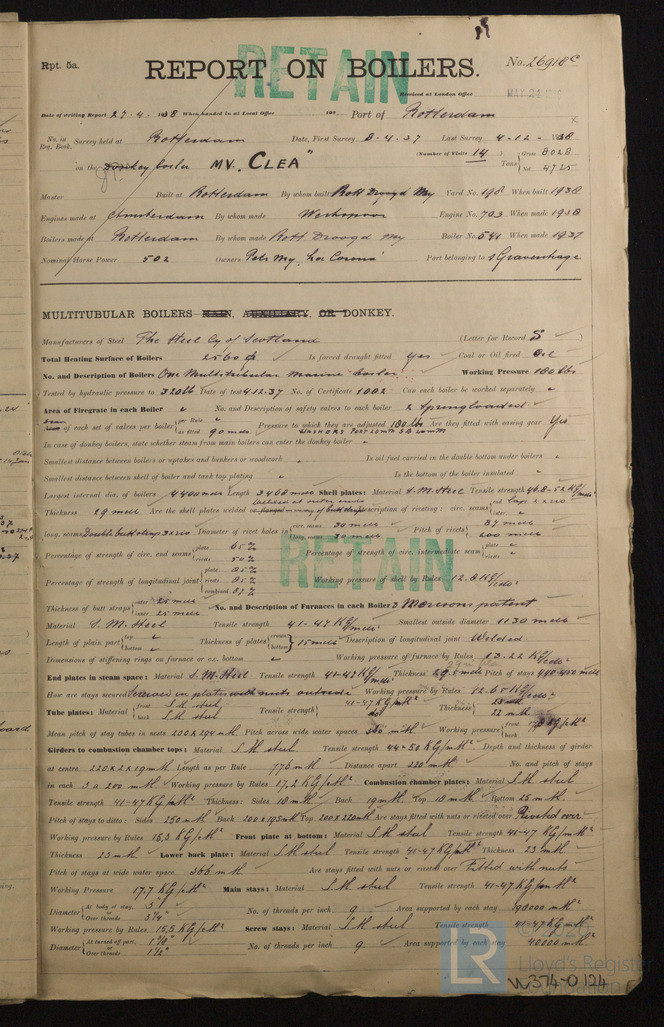 RETAIN
Rpt. 5a.
REPORT ON BOILERS.
No. 26918c
Received at London Office
MAY 24 1938
Date of writing Report 27-4-1938 When handed in at Local Office 193 Port of Rotterdam
No. in Reg. Book. Survey held at Rotterdam Date, First Survey 8-4-37 Last Survey 4-12-1938
(Number of Visits 14) Tons { Gross 8028
Net 4725
on the Donkey boiler MV. "CLEA"
Master Built at Rotterdam By whom built Rott Droogd My Yard No. 198 When built 1938
Engines made at Amsterdam By whom made Werkspoor Engine No. 703 When made 1938
Boilers made at Rotterdam By whom made Rott Droogd My Boiler No. 541 When made 1937
Nominal Horse Power 502 Owners Petr My "La Corona" Port belonging to s Gravenhage
MULTITUBULAR BOILERS MAIN, AUXILIARY, OR DONKEY.
Manufacturers of Steel The Steel Cy of Scotland (Letter for Record S)
Total Heating Surface of Boilers 2560 Is forced draught fitted yes Coal or Oil fired Oil
No. and Description of Boilers One Multitubular marine boiler Working Pressure 180 lbs
Tested by hydraulic pressure to 320 lb Date of test 4.12.37 No. of Certificate 1002 Can each boiler be worked separately
Area of Firegrate in each Boiler No. and Description of safety valves to each boiler 2 Springloaded
of each set of valves per boiler { per Rule
as fitted 90 mm Pressure to which they are adjusted 180 lbs Are they fitted with easing gear Yes
In case of donkey boilers, state whether steam from main boilers can enter the donkey boiler
Smallest distance between boilers or uptakes and bunkers or woodwork Is oil fuel carried in the double bottom under boilers
Smallest distance between shell of boiler and tank top plating Is the bottom of the boiler insulated
Largest internal dia. of boilers 4400 mm Length 3460 mm Shell plates: Material S.M. Steel Tensile strength 46.8-52 KG/mm²
Thickness 29 mm Are the shell plates welded or flanged Description of riveting: circ. seams { end Lap 2 x
inter.
long. seams Double butt strap Diameter of rivet holes in { circ. seams 30 mm
long. seams 30 mm Pitch of rivets { 87 mm
200 mm
RETAIN
Percentage of strength of circ. end seams { plate 65 %
rivets 50 % Percentage of strength of circ. intermediate seam { plate
rivets
Percentage of strength of longitudinal joint { plate 85 %
rivets 85 %
combined 87 % Working pressure of shell by Rules 12.8 KG/cm²
Thickness of butt straps { outer 25 mm
inner 25 mm No. and Description of Furnaces in each Boiler 2 Morisons patent
Material S.M. Steel Tensile strength 41-47 KG/mm² Smallest outside diameter 1130 mm
Length of plain part { top
bottom Thickness of plates { crown
bottom } 15 mm Description of longitudinal joint Welded
Dimensions of stiffening rings on furnace or c.c. bottom Working pressure of furnace by Rules 13.22 KG/cm²
End plates in steam space: Material S.M. Steel Tensile strength 41-47 KG/mm² Thickness 29.5 mm Pitch of stays 440 x 450 mm
How are stays secured Screwed in plates with nuts outside Working pressure by Rules 12.65 KG/cm²
Tube plates: Material { front S.M. steel
back S.M. steel Tensile strength { 41-47 KG/mm² Thickness {
23 mm
Mean pitch of stay tubes in nests 200 x 294 mm Pitch across wide water spaces 350 mm Working pressure { front
back
Girders to combustion chamber tops: Material S.M. steel Tensile strength 44-50 KG/mm² Depth and thickness of girder
at centre 220 x 2 x 19 mm Length as per Rule 776 mm Distance apart 220 mm No. and pitch of stays
in each 3 a 200 mm Working pressure by Rules 17.2 KG/mm² Combustion chamber plates: Material S.M. steel
Tensile strength 41-47 KG/mm² Thickness: Sides 18 mm Back 19 mm Top 18 mm Bottom 25 mm
Pitch of stays to ditto: Sides 250 mm Back 200 x 195 mm Top 200 x 220 mm Are stays fitted with nuts or riveted over Riveted over
Working pressure by Rules 15.3 KG/mm² Front plate at bottom: Material S.M. steel Tensile strength 41-47 KG/mm²
Thickness 23 mm Lower back plate: Material S.M. steel Tensile strength 41-47 KG/mm² Thickness 23 mm
Pitch of stays at wide water space 366 mm Are stays fitted with nuts or riveted over Fitted with nuts
Working Pressure 17.7 KG/mm² Main stays: Material S.M. steel Tensile strength 41-47 KG/mm²
Diameter { At body of stay, 3"
Over threads 3¼" No. of threads per inch 9 Area supported by each stay 198000 mm²
Working pressure by Rules 15.5 KG/mm² Screw stays: Material S.M. steel Tensile strength 41-47 KG/mm²
Diameter { At turned off part, 1 3/8"
Over threads 1½" No. of threads per inch 9 Area supported by each stay 40000 mm²
LR
© 2020
Lloyd's Register
Foundation
W374-0124